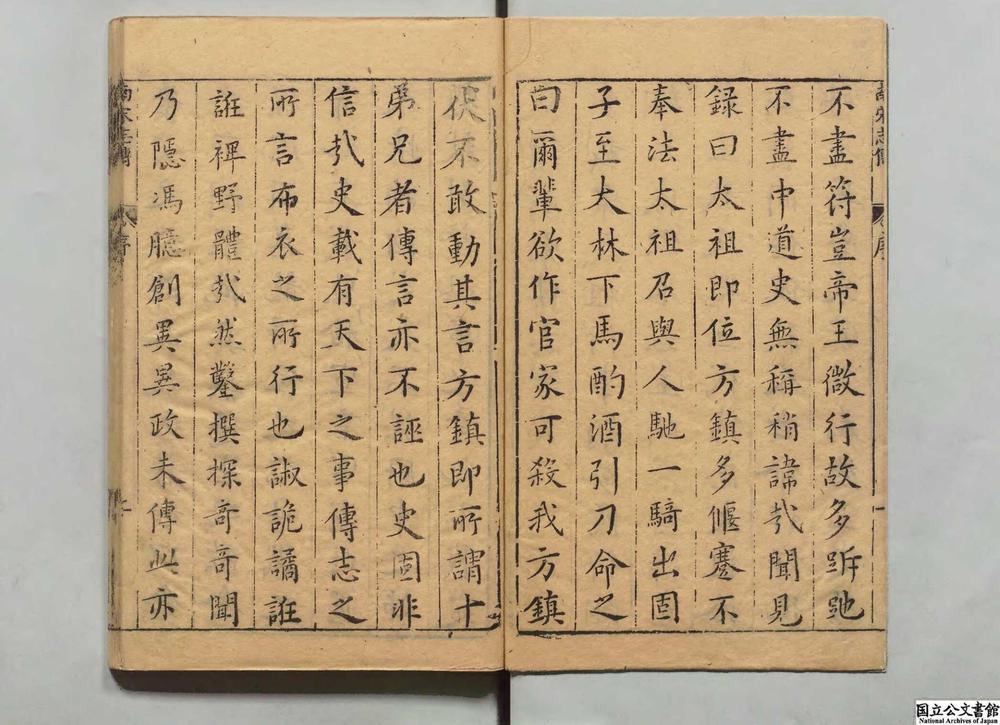 不盡符豈帝王微行故多跅弛
不盡中道史無稱稍諱㢤聞見
録曰太祖即位方鎮多偃蹇不
奉法太祖召與人馳一騎出固
子至大林下馬酌酒引刀命之
曰爾輩欲作官家可殺我方鎮
伏不敢動其言方鎮即所謂十
弟兄者傳言亦不誣也史固非
信㢤史載有天下之事傳志之
所言布衣之所行也諔詭譎誑
誑裨野體㢤然鑿撰探奇奇聞
乃隱馮臆創異異政未傳此亦
南宋志傳
序
国立公文書館
National Archives of Japan